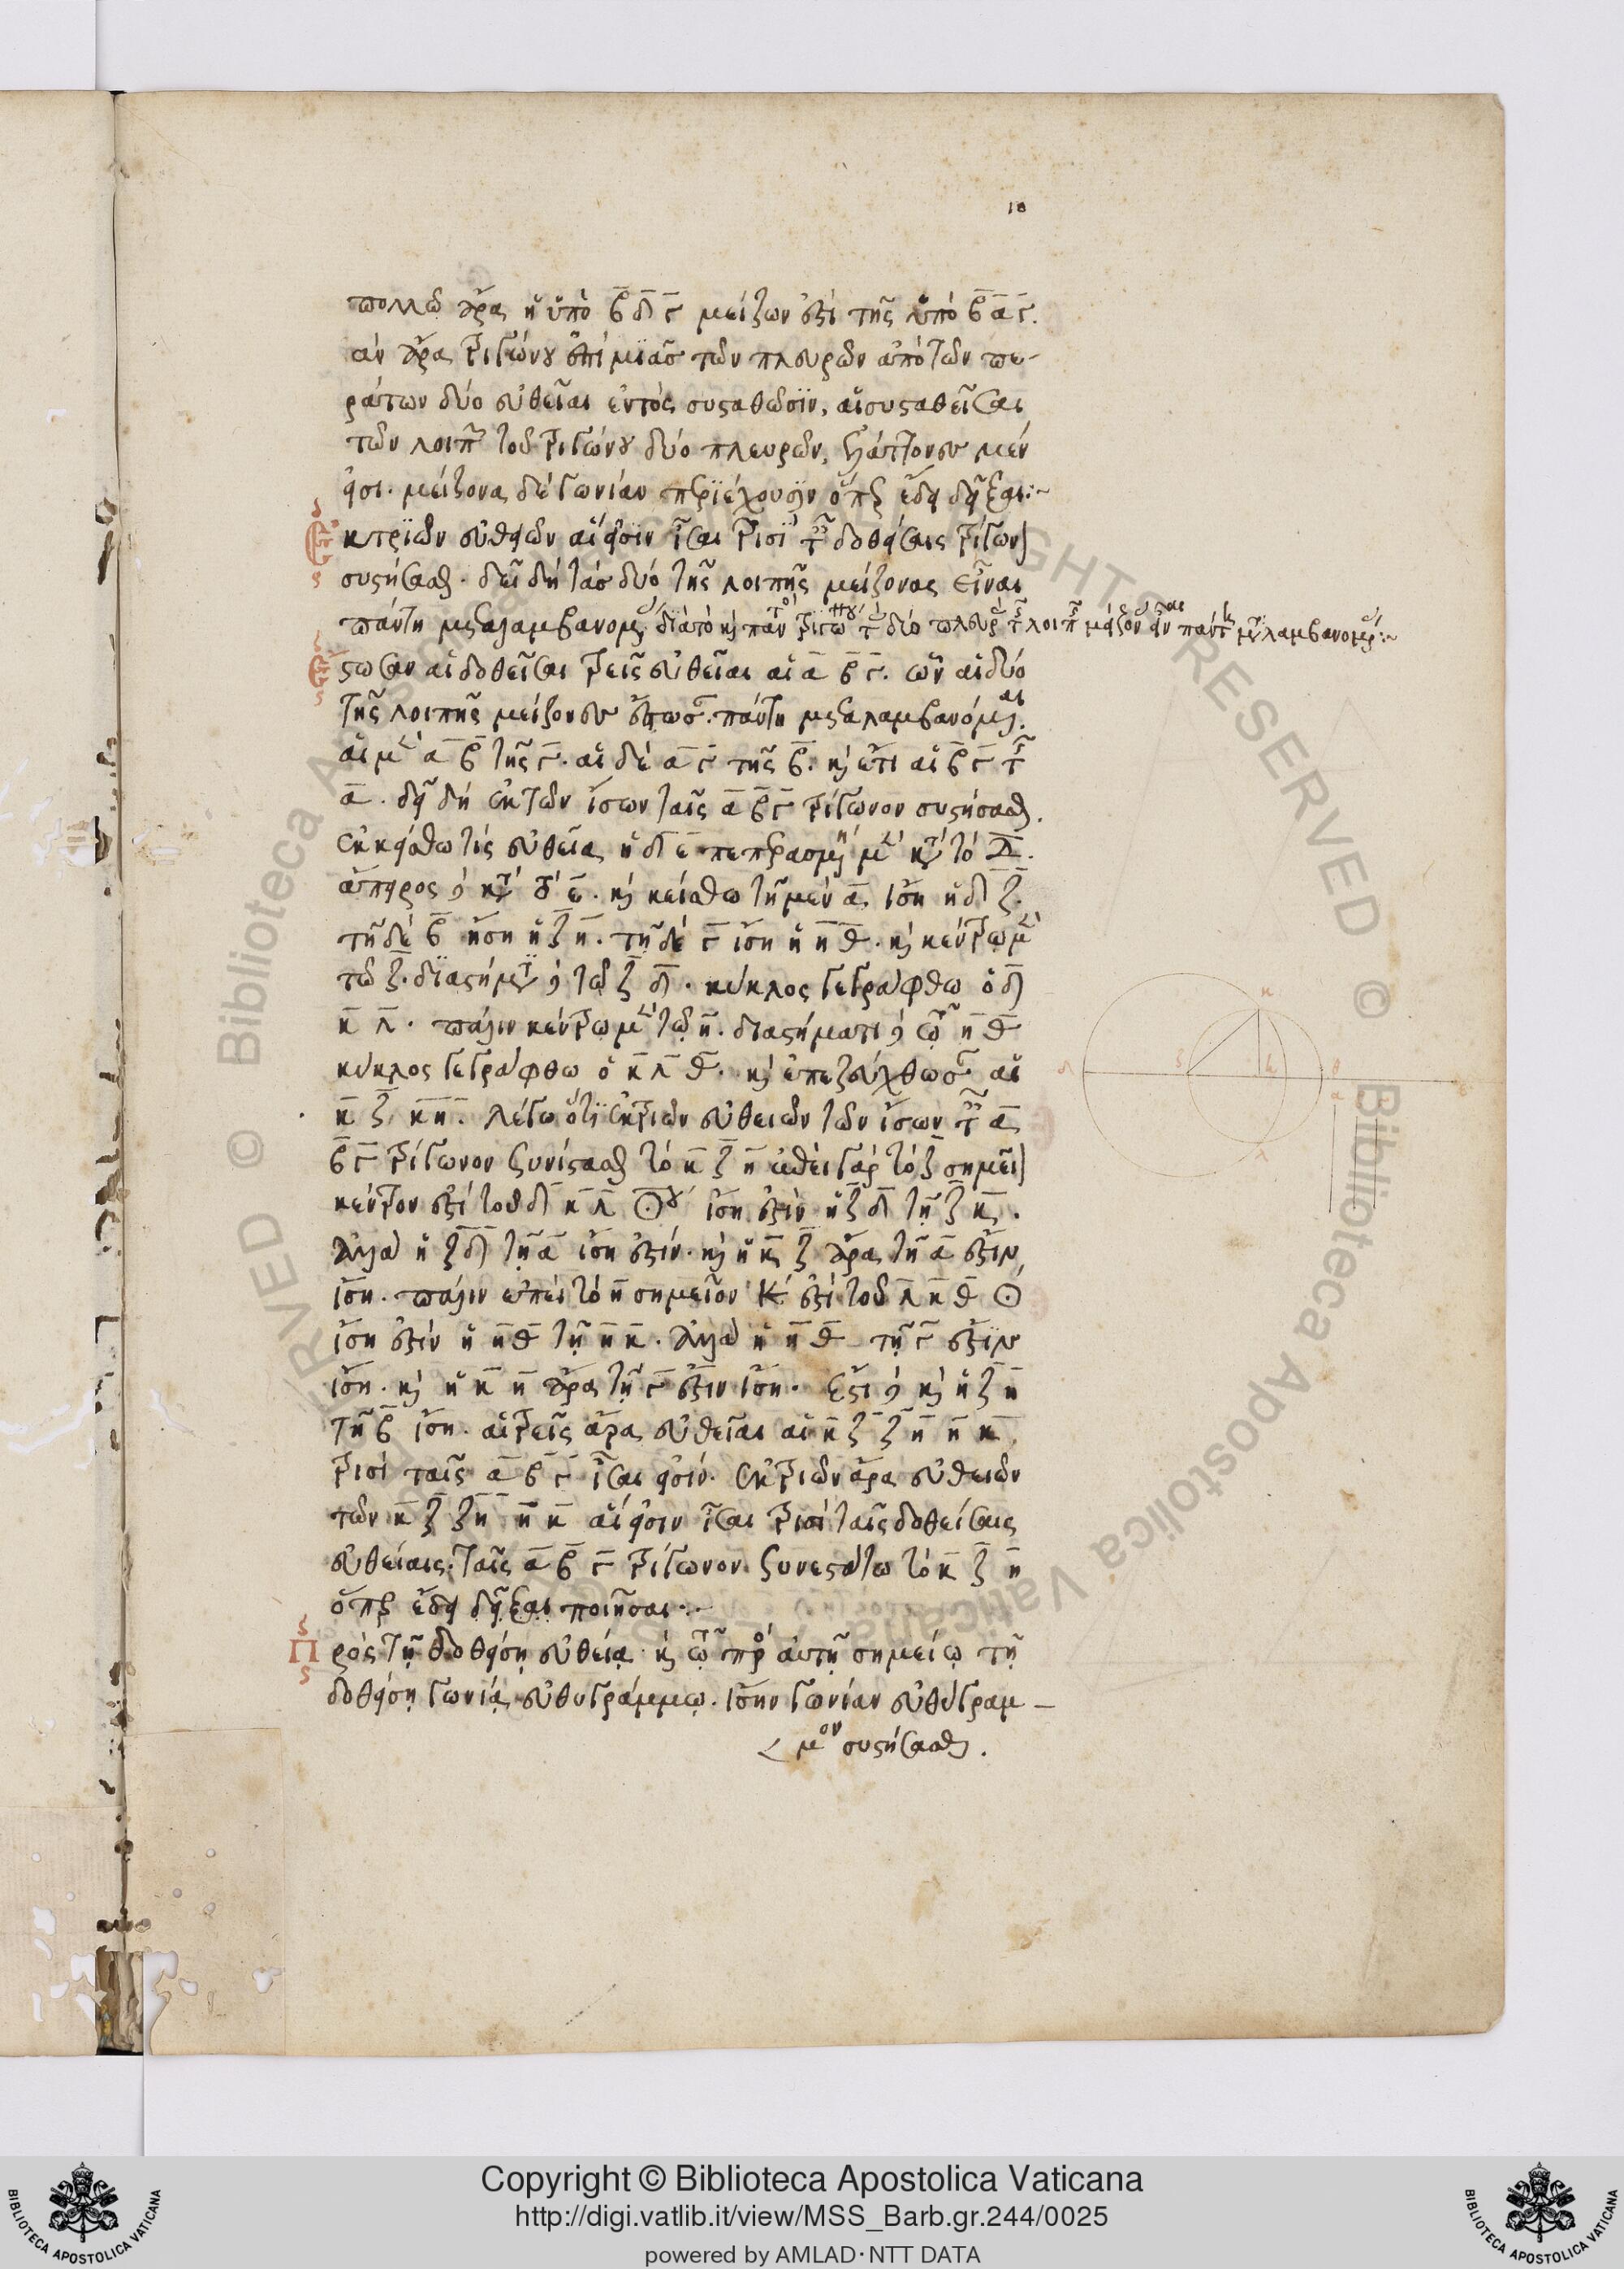 10
πολλῷ ἄρα ἡ ὑπὸ β δ γ μείζων ἐστὶ τῆς ὑπὸ β α γ.
ἐὰν ἄρα τριγώνου ἐπὶ μιᾶς τῶν πλευρῶν ἀπὸ τῶν πε-
ράτων δύο εὐθεῖαι ἐντὸς συσταθῶσιν, αἱ συσταθεῖσαι
τῶν λοιπῶν τοῦ τριγώνου δύο πλευρῶν, ἐλάττονες μὲν
εἰσι. μείζονα δὲ γωνίαν περιέχουσιν ὅπερ ἔδει δεῖξαι:~
Ἐκ τριῶν εὐθειῶν αἵ εἰσιν ἴσαι τρισὶ ταῖς δοθείσαις τρίγωνον
συστήσασθαι. δεῖ δὴ τὰς δύο τῆς λοιπῆς μείζονας εἶναι
πάντη μεταλαμβανομένας διὰ τὸ καὶ παντὸς τριγώνου τὰς δύο πλευρὰς τῆς λοιπῆς μείζονας εἶναι πάντη μεταλαμβανομένας:~
Ἔστωσαν αἱ δοθεῖσαι τρεῖς εὐθεῖαι αἱ α β γ. ὧν αἱ δύο
τῆς λοιπῆς μείζονες ἔστωσαν. πάντη μεταλαμβανόμεναι.
αἱ μὲν α β τῆς γ. αἱ δὲ α γ τῆς β. καὶ ἔτι αἱ β γ τῆς
α. δεῖ δὴ ἐκ τῶν ἴσων ταῖς α β γ τρίγωνον συστήσασθαι.
ἐκκείσθω τις εὐθεῖα ἡ δ ε πεπερασμένη μὲν κατὰ τὸ δ.
ἄπειρος δὲ κατὰ τὸ ε. καὶ κείσθω τῇ μὲν α ἴση ἡ δ ζ.
τῇ δὲ β ἴση ἡ ζ η. τῇ δὲ γ ἴση ἡ η θ. καὶ κέντρω μὲν
τῷ ζ. διαστήματι δὲ τῷ ζ δ. κύκλος γεγράφθω ὁ δ
κ λ. πάλιν κέντρω μὲν τῷ η. διαστήματι δὲ τῷ η θ
κύκλος γεγράφθω ὁ κ λ θ. καὶ ἐπεζεύχθωσαν αἱ
κ ζ κ η. λέγω ὅτι ἐκ τριῶν εὐθειῶν τῶν ἴσων ταῖς α
β γ τρίγωνον συνίσταται τὸ κ ζ η ἐπεὶ γὰρ τὸ ζ σημεῖον
κέντρον ἐστὶ τοῦ δ κ λ ☉ου ἴση ἐστὶν ἡ ζ δ τῇ ζ κ.
ἀλλὰ ἡ ζ δ τῇ α ἴση ἐστίν. καὶ ἡ κ ζ ἄρα τῇ α ἐστὶν
ἴση. πάλιν ἐπεὶ τὸ η σημεῖον κέντρον ἐστὶ τοῦ λ κ θ ☉
ἴση ἐστὶν ἡ η θ τῇ η κ. ἀλλὰ ἡ η θ τῇ γ ἐστὶν
ἴση. καὶ ἡ κ η ἄρα τῇ γ ἐστιν ἴση. ἔστι δὲ καὶ ἡ ζ η
τῇ β ἴση. αἱ τρεῖς ἄρα εὐθεῖαι αἱ κ ζ ζ η η κ
τρισὶ ταῖς α β γ ἴσαι εἰσίν. ἐκ τριῶν ἄρα εὐθειῶν
τῶν κ ζ ζ η η κ αἵ εἰσιν ἴσαι τρισὶ ταῖς δοθείσαις
εὐθείαις ταῖς α β γ τρίγωνον συνεστάτω τὸ κ ζ η
ὅπερ ἔδει δεῖξαι ποιῆσαι:~
Πρὸς τῇ δοθείσῃ εὐθείᾳ καὶ τῷ πρὸς αὐτῇ σημείῳ τῇ
δοθείσῃ γωνίᾳ εὐθυγράμμῳ. ἴσην γωνίαν εὐθύγραμ-
μον συστήσασθαι.
κ
δ ζ η θ ε
λ
Copyright © Biblioteca Apostolica Vaticana
http://digi.vatlib.it/view/MSS_Barb.gr.244/0025
powered by AMLAD·NTT DATA
BIBLIOTECA APOSTOLICA VATICANA
BIBLIOTECA APOSTOLICA VATICANA